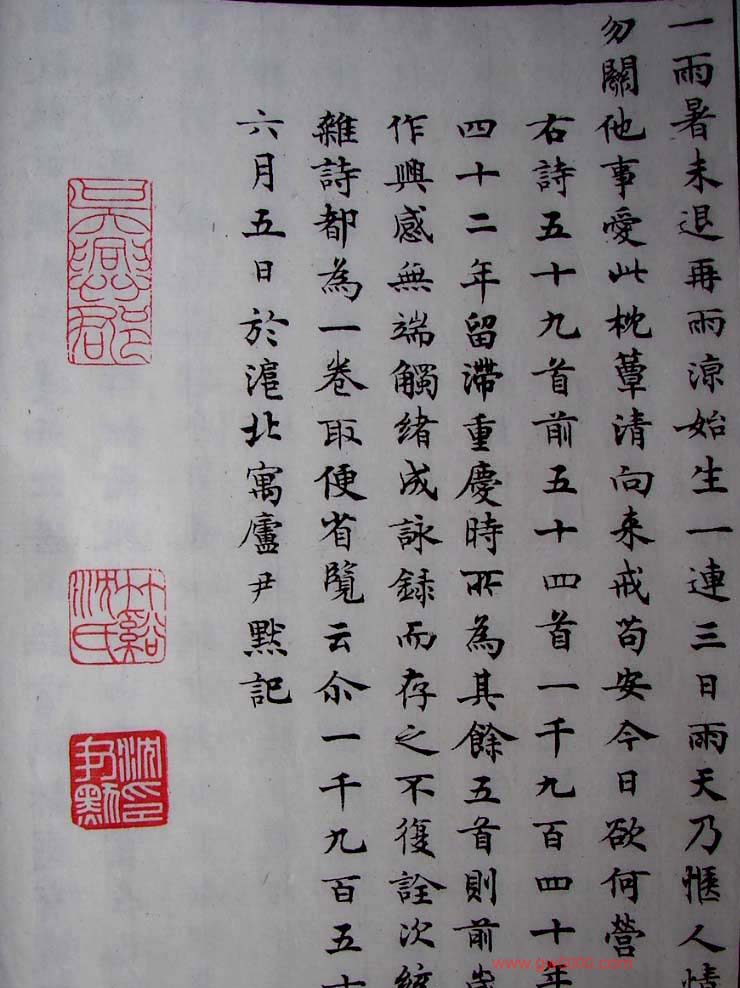 一雨暑未退再雨涼始生一連三日雨天乃愜人情
勿關他事愛此枕簟清向来戒苟安今日欲何營
右詩五十九首前五十四首一千九百四十年
四十二年留滯重慶時所為其餘五首則前歲
作興感無端觸緒成詠録而存之不復詮次統
雜詩都為一卷取便省覽云尒一千九百五十
六月五日於滬北寓廬尹默記
竹谿沈氏
沈尹默印